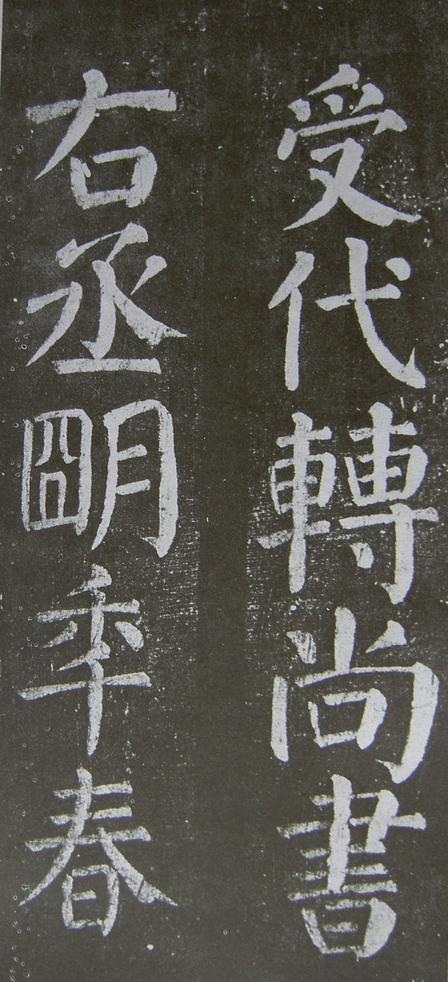 受代轉尚書
右丞朙秊春